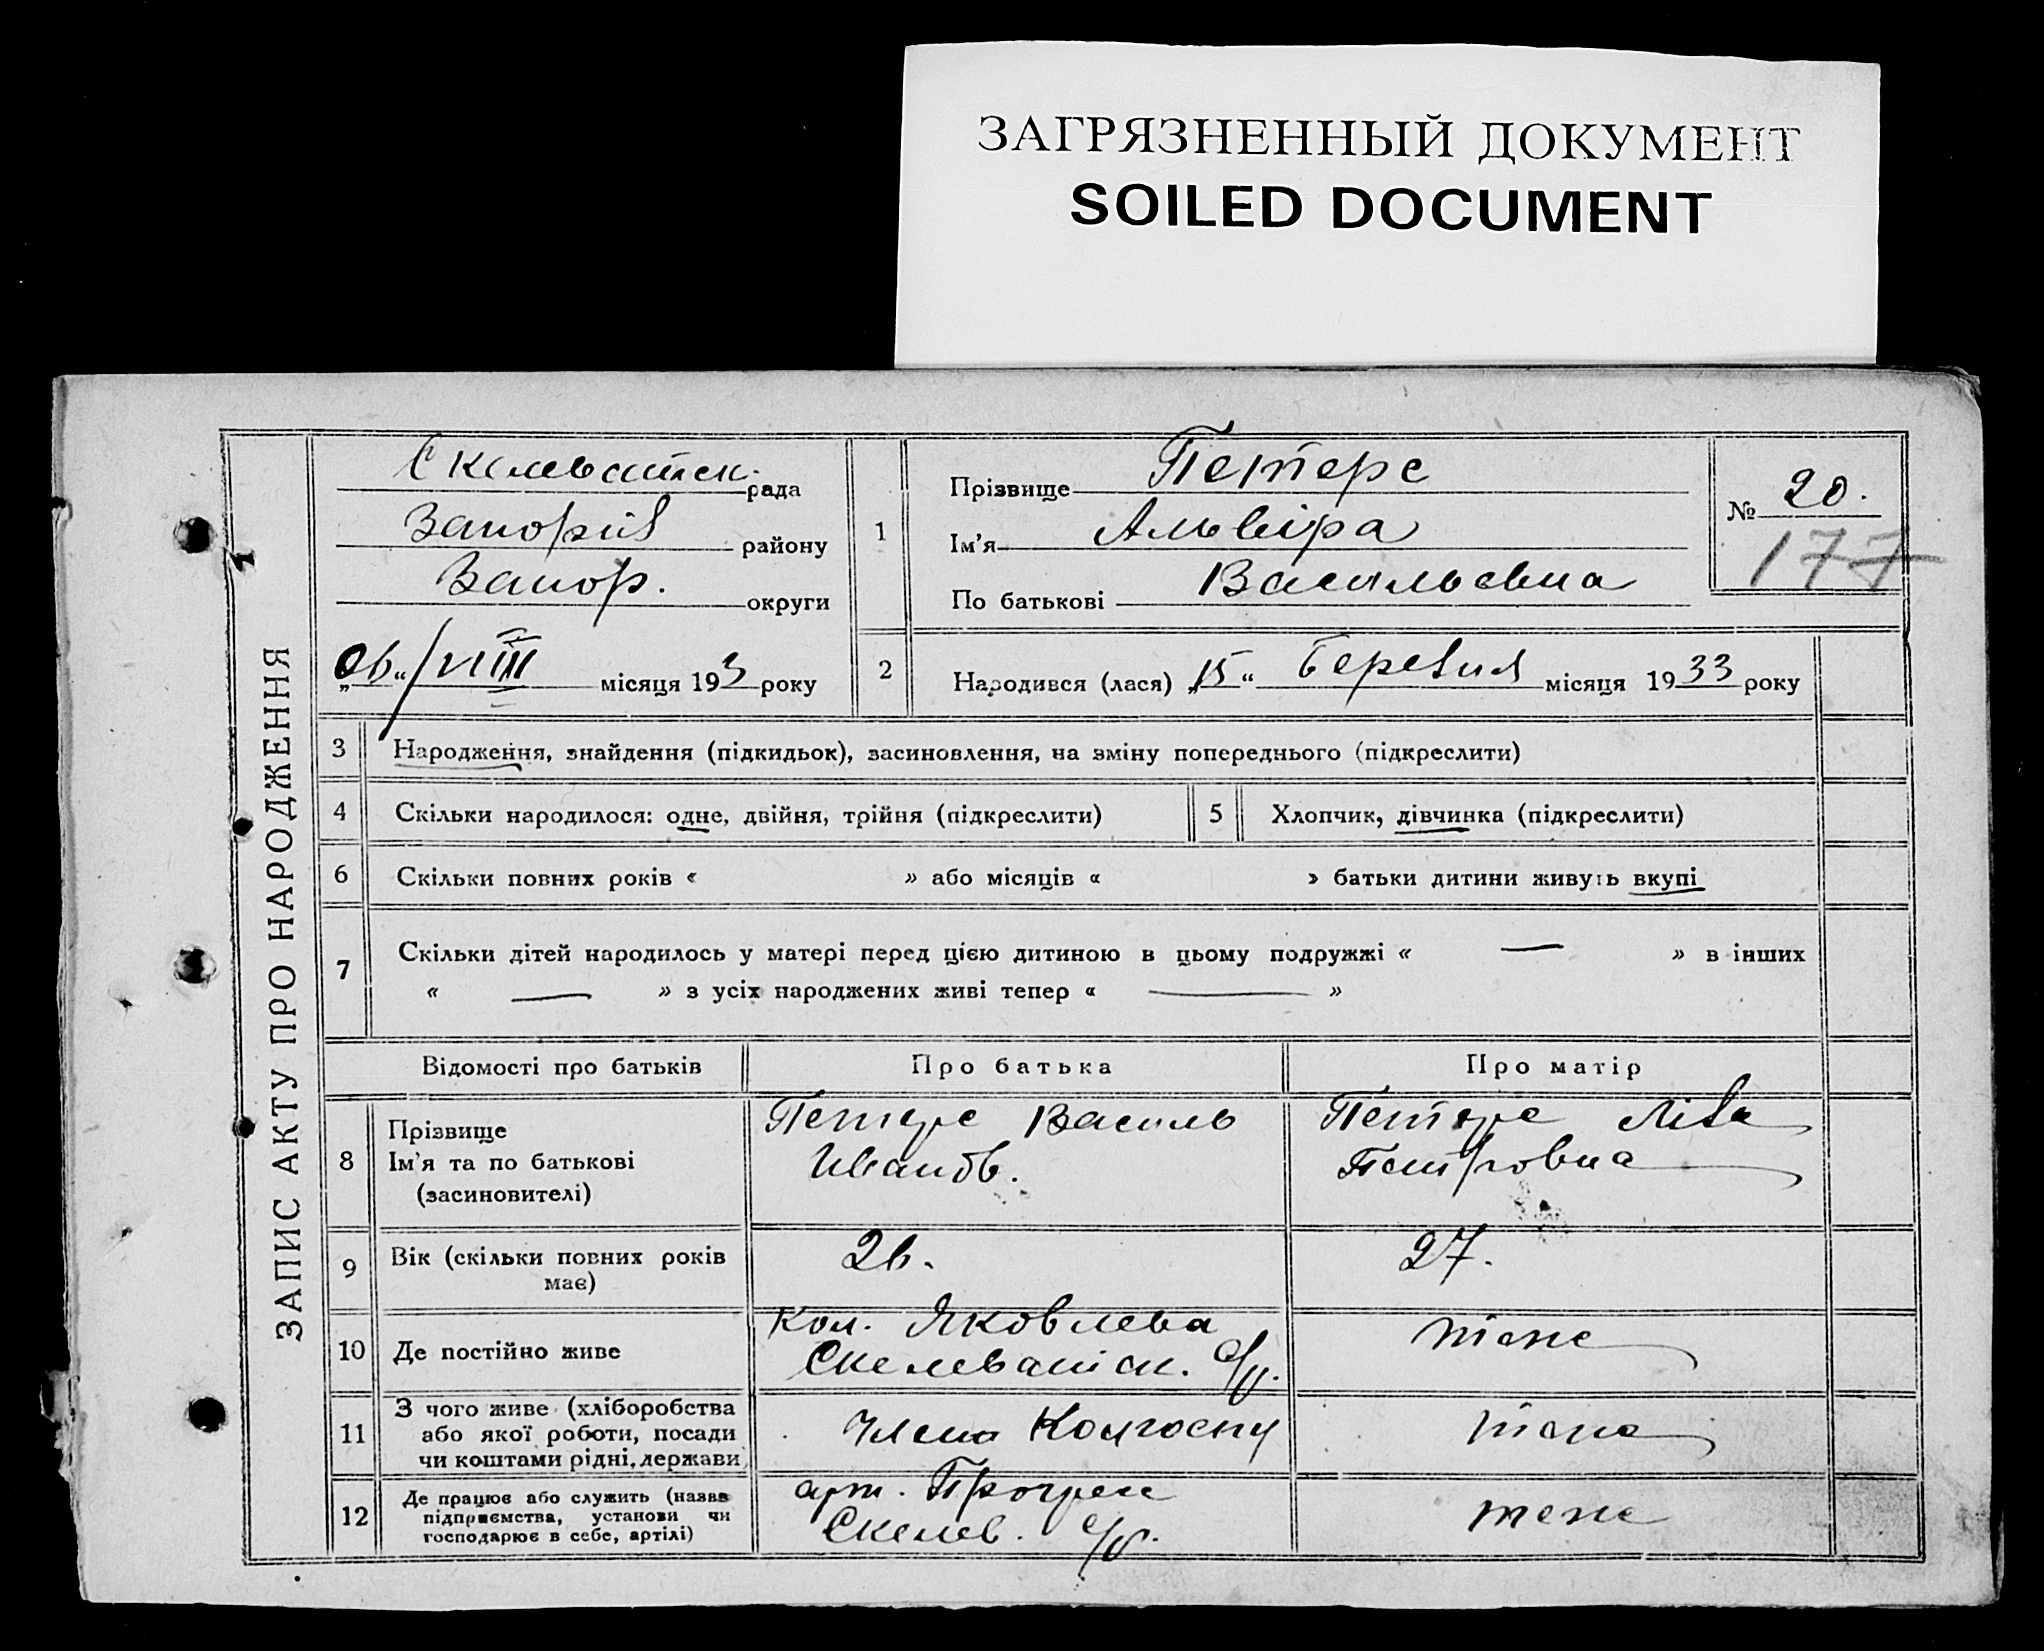 ЗАГРЯЗНЕННЫЙ ДОКУМЕНТ
SOILED DOCUMENT
ЗАПИС АКТУ ПРО НАРОДЖЕННЯ
Скелеватск. рада
Запоріз району
Запор. округи
„06“ / VIII місяця 193 3 року
1
Прізвище Петерс
Ім'я Альвіра
По батькові Васильевна
№ 20.
177
2
Народився (лася) „15“ Березня місяця 1933 року
3 Народження, знайдення (підкидьок), засиновлення, на зміну попереднього (підкреслити)
4 Скільки народилося: одне, двійня, трійня (підкреслити)
5 Хлопчик, дівчинка (підкреслити)
6 Скільки повних років « » або місяців « » батьки дитини живуть вкупі
7 Скільки дітей народилось у матері перед цією дитиною в цьому подружжі « — » в інших
« — » з усіх народжених живі тепер « — »
Відомості про батьків
Про батька
Про матір
8
Прізвище
Ім'я та по батькові
(засиновителі)
Петерс Василь
Иванов.
Петерс Ліза
Петровна
9
Вік (скільки повних років
має)
26.
27.
10 Де постійно живе
Кол. Яковлева
Скелеватск. с/р.
теже
11
З чого живе (хліборобства
або якої роботи, посади
чи коштами рідні, держави
Член Колгоспу
теже
12
Де працює або служить (назва
підприємства, установи чи
господарює в себе, артілі)
арт. Прогрес
Скелев. с/р.
теже